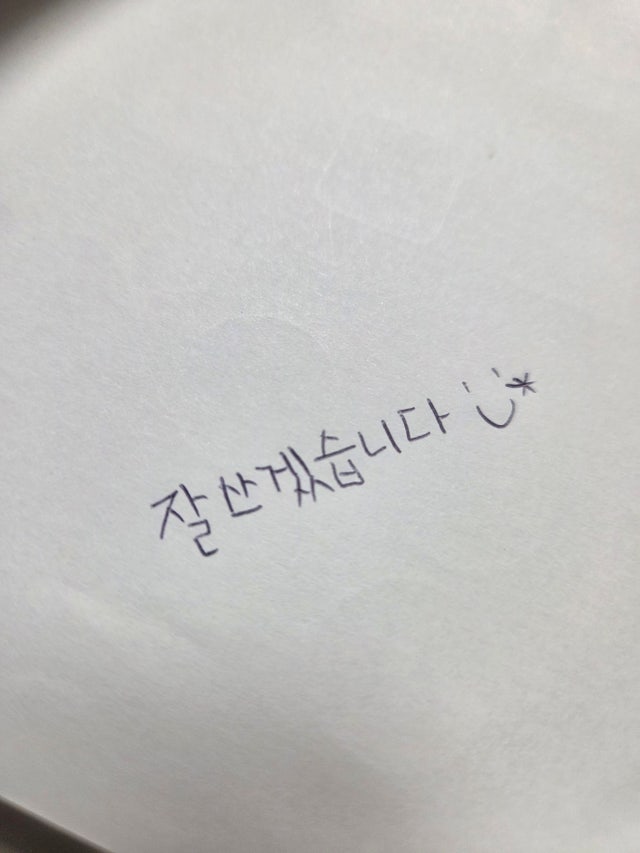 잘 산겠습니다 :)*